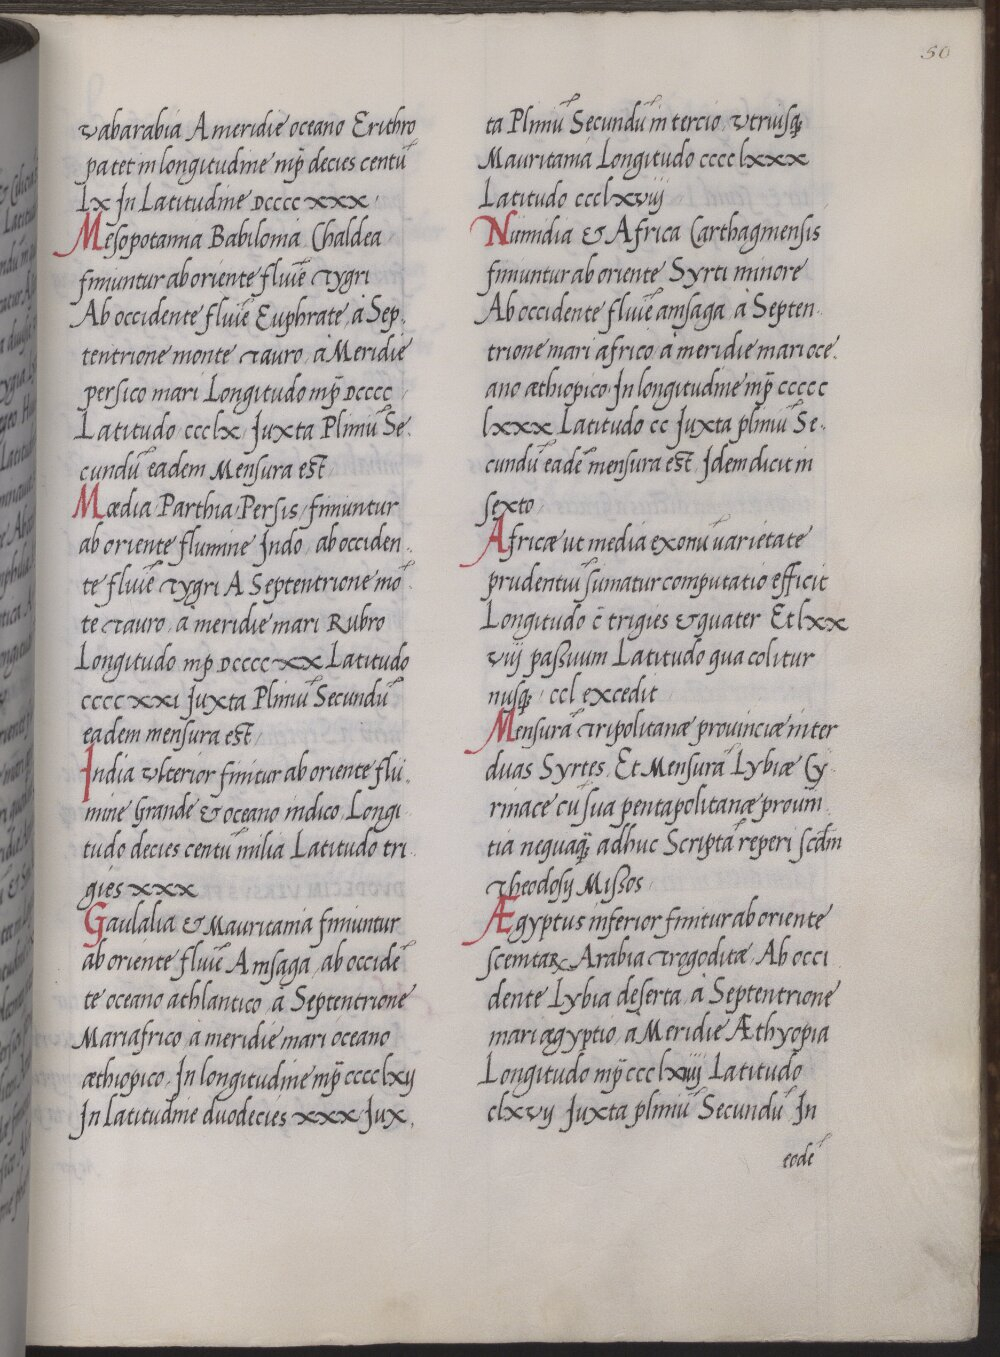 50
vabarabia A meridie oceano Erithro
patet in longitudine mp̄ decies centū
Lx In Latitudine DCCCC xxx
Mesopotamia Babilonia Chaldea
finiuntur ab oriente fluiē Tygri
Ab occidente fluiē Euphrate, à Sep-
tentrione monte Tauro, à Meridie
persico mari Longitudo mp̄ DCCCC
Latitudo ccclx Juxta Pliniū Se-
cundū eadem Mensura est̄
Mædia Parthia Persis finiuntur
ab oriente flumine Indo ab occiden-
te fluiē Tygri A Septentrione mō
te Tauro, à meridie mari Rubro
Longitudo mp DCCCC xx Latitudo
CCCC xxi Juxta Pliniū Secundū
eadem mensura est̄
India vlterior finitur ab oriente flu-
mine Grande & oceano indico Longi-
tudo decies centū milia Latitudo tri-
gies xxx
Gaulalia & Mauritania finiuntur
ab oriente fluiē Amsaga ab occidē
te oceano athlantico à Septentrione
Mari africo à meridie mari oceano
æthiopico In longitudine mp̄ cccclxij
In Latitudine duodecies xxx Jux-
ta Pliniū Secundū in tercio vtriusq;
Mauritania Longitudo cccc lxxx
Latitudo ccclxviij
Numidia & Africa Carthaginensis
finiuntur ab oriente Syrti minore
Ab occidente fluiē amsaga à Septen-
trione mari africo à meridie mari oce-
ano æthiopico In longitudine mp̄ ccccc
lxxx Latitudo cc Juxta pliniū Se-
cundū eadē mensura est̄ Idem dicit in
sexto
Africæ ut media ex onū varietate
prudentiū sumatur computatio efficit
Longitudo c̄ trigies & quater Et lxx
viij paßuum Latitudo qua colitur
nusq; ccl excedit
Mensurā Tripolitanæ provinciæ inter
duas Syrtes Et Mensurā Lybiæ Cy-
rinace cū sua pentapolitanæ prouin-
tia nequaq; adhuc Scriptā reperi scdm̄
Theodosij Mißos
Ægyptus inferior finitur ab oriente
scenitaꝝ Arabia Trogoditæ Ab occi-
dente Lybia deserta à Septentrione
mari ægyptio à Meridie Æthyopia
Longitudo mp̄ ccclxiiij Latitudo
clxvij Juxta pliniū Secundū In
eodē